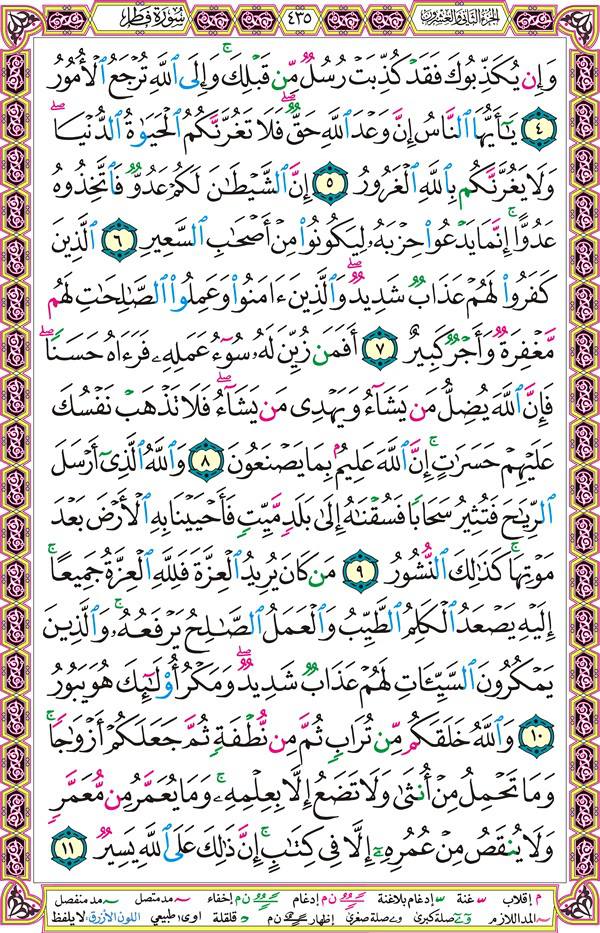 الجزء الثاني والعشرون
٤٣٥
سورة فاطر
وَإِن يُكَذِّبُوكَ فَقَدْ كُذِّبَتْ رُسُلٌ مِّن قَبْلِكَ ۚ وَإِلَى ٱللَّهِ تُرْجَعُ ٱلْأُمُورُ
٤ يَـٰٓأَيُّهَا ٱلنَّاسُ إِنَّ وَعْدَ ٱللَّهِ حَقٌّ ۖ فَلَا تَغُرَّنَّكُمُ ٱلْحَيَوٰةُ ٱلدُّنْيَا ۖ
وَلَا يَغُرَّنَّكُم بِٱللَّهِ ٱلْغَرُورُ ٥ إِنَّ ٱلشَّيْطَـٰنَ لَكُمْ عَدُوٌّ فَٱتَّخِذُوهُ
عَدُوًّا ۚ إِنَّمَا يَدْعُوا۟ حِزْبَهُۥ لِيَكُونُوا۟ مِنْ أَصْحَـٰبِ ٱلسَّعِيرِ ٦ ٱلَّذِينَ
كَفَرُوا۟ لَهُمْ عَذَابٌ شَدِيدٌ ۖ وَٱلَّذِينَ ءَامَنُوا۟ وَعَمِلُوا۟ ٱلصَّـٰلِحَـٰتِ لَهُم
مَّغْفِرَةٌ وَأَجْرٌ كَبِيرٌ ٧ أَفَمَن زُيِّنَ لَهُۥ سُوٓءُ عَمَلِهِۦ فَرَءَاهُ حَسَنًا ۖ
فَإِنَّ ٱللَّهَ يُضِلُّ مَن يَشَآءُ وَيَهْدِى مَن يَشَآءُ ۖ فَلَا تَذْهَبْ نَفْسُكَ
عَلَيْهِمْ حَسَرَٰتٍ ۚ إِنَّ ٱللَّهَ عَلِيمٌۢ بِمَا يَصْنَعُونَ ٨ وَٱللَّهُ ٱلَّذِىٓ أَرْسَلَ
ٱلرِّيَـٰحَ فَتُثِيرُ سَحَابًا فَسُقْنَـٰهُ إِلَىٰ بَلَدٍ مَّيِّتٍ فَأَحْيَيْنَا بِهِ ٱلْأَرْضَ بَعْدَ
مَوْتِهَا ۚ كَذَٰلِكَ ٱلنُّشُورُ ٩ مَن كَانَ يُرِيدُ ٱلْعِزَّةَ فَلِلَّهِ ٱلْعِزَّةُ جَمِيعًا ۚ
إِلَيْهِ يَصْعَدُ ٱلْكَلِمُ ٱلطَّيِّبُ وَٱلْعَمَلُ ٱلصَّـٰلِحُ يَرْفَعُهُۥ ۚ وَٱلَّذِينَ
يَمْكُرُونَ ٱلسَّيِّـَٔاتِ لَهُمْ عَذَابٌ شَدِيدٌ ۖ وَمَكْرُ أُو۟لَـٰٓئِكَ هُوَ يَبُورُ
١٠ وَٱللَّهُ خَلَقَكُم مِّن تُرَابٍ ثُمَّ مِن نُّطْفَةٍ ثُمَّ جَعَلَكُمْ أَزْوَٰجًا ۚ
وَمَا تَحْمِلُ مِنْ أُنثَىٰ وَلَا تَضَعُ إِلَّا بِعِلْمِهِۦ ۚ وَمَا يُعَمَّرُ مِن مُّعَمَّرٍ
وَلَا يُنقَصُ مِنْ عُمُرِهِۦٓ إِلَّا فِى كِتَـٰبٍ ۚ إِنَّ ذَٰلِكَ عَلَى ٱللَّهِ يَسِيرٌ ١١
م إقلاب غنة إدغام بلاغنة ن م إدغام ن م إخفاء مد متصل مد منفصل
المد اللازم صلة كبرى صلة صغرى إظهار ن م قلقلة اوى طبيعي اللون الأزرق: لا يلفظ